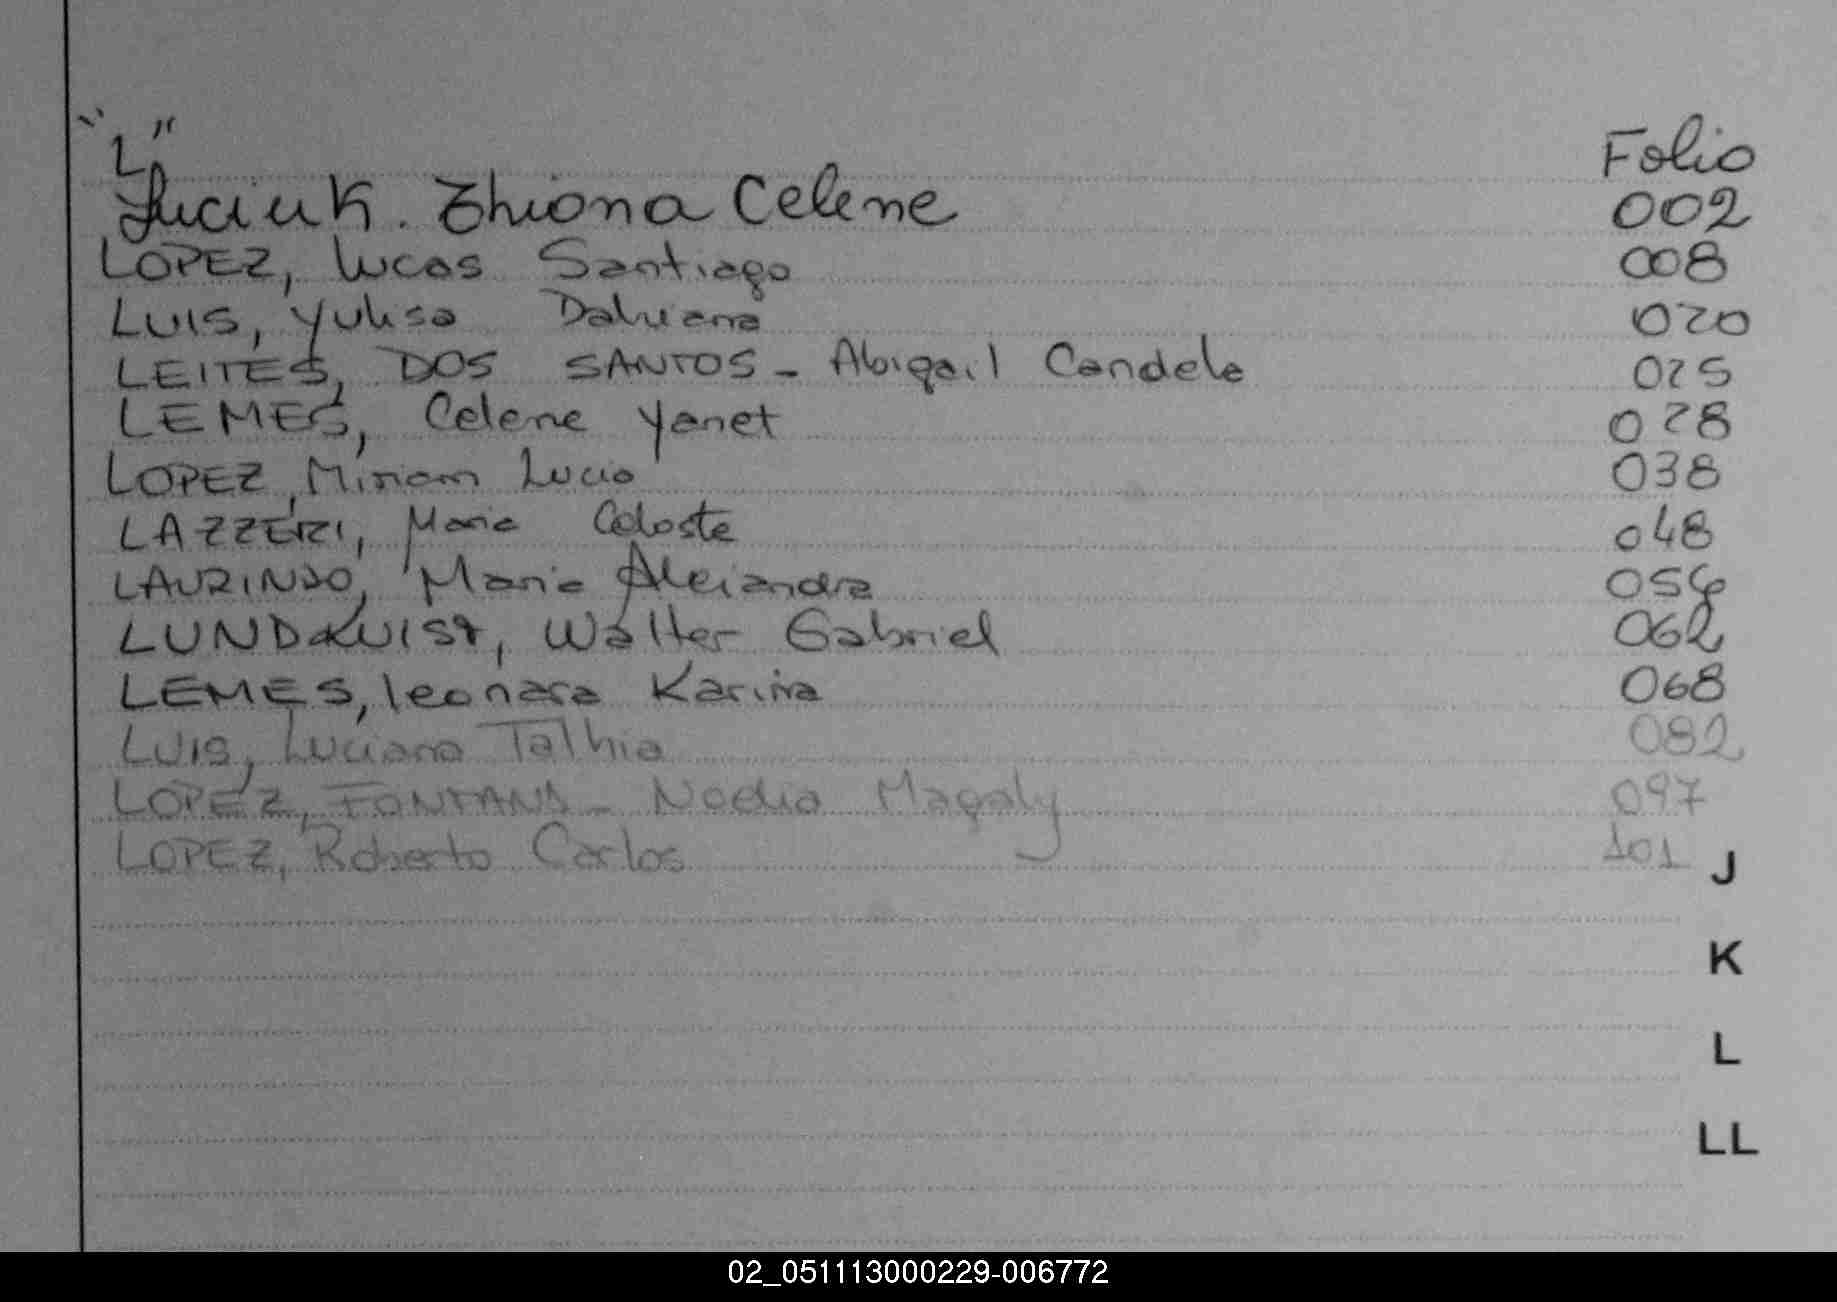 "L" Folio
Luciuk. Thiona Celene 002
LOPEZ, Lucas Santiago 008
LUIS, Yulisa Daluiana 020
LEITES, DOS SANTOS - Abigail Candela 025
LEMES, Celene Yanet 028
LOPEZ, Miriam Lucia 038
LAZZERI, Maria Celeste 048
LAURINDO, Maria Alejandra
LUNDQUIST, Walter Gabriel 062
LEMES, leonara Karina 068
LUIS, Luciana Talhia 082
LOPEZ, FONTANA - Noelia Magaly 097
LOPEZ, Roberto Carlos 101
J
K
L
LL
02_051113000229-006772